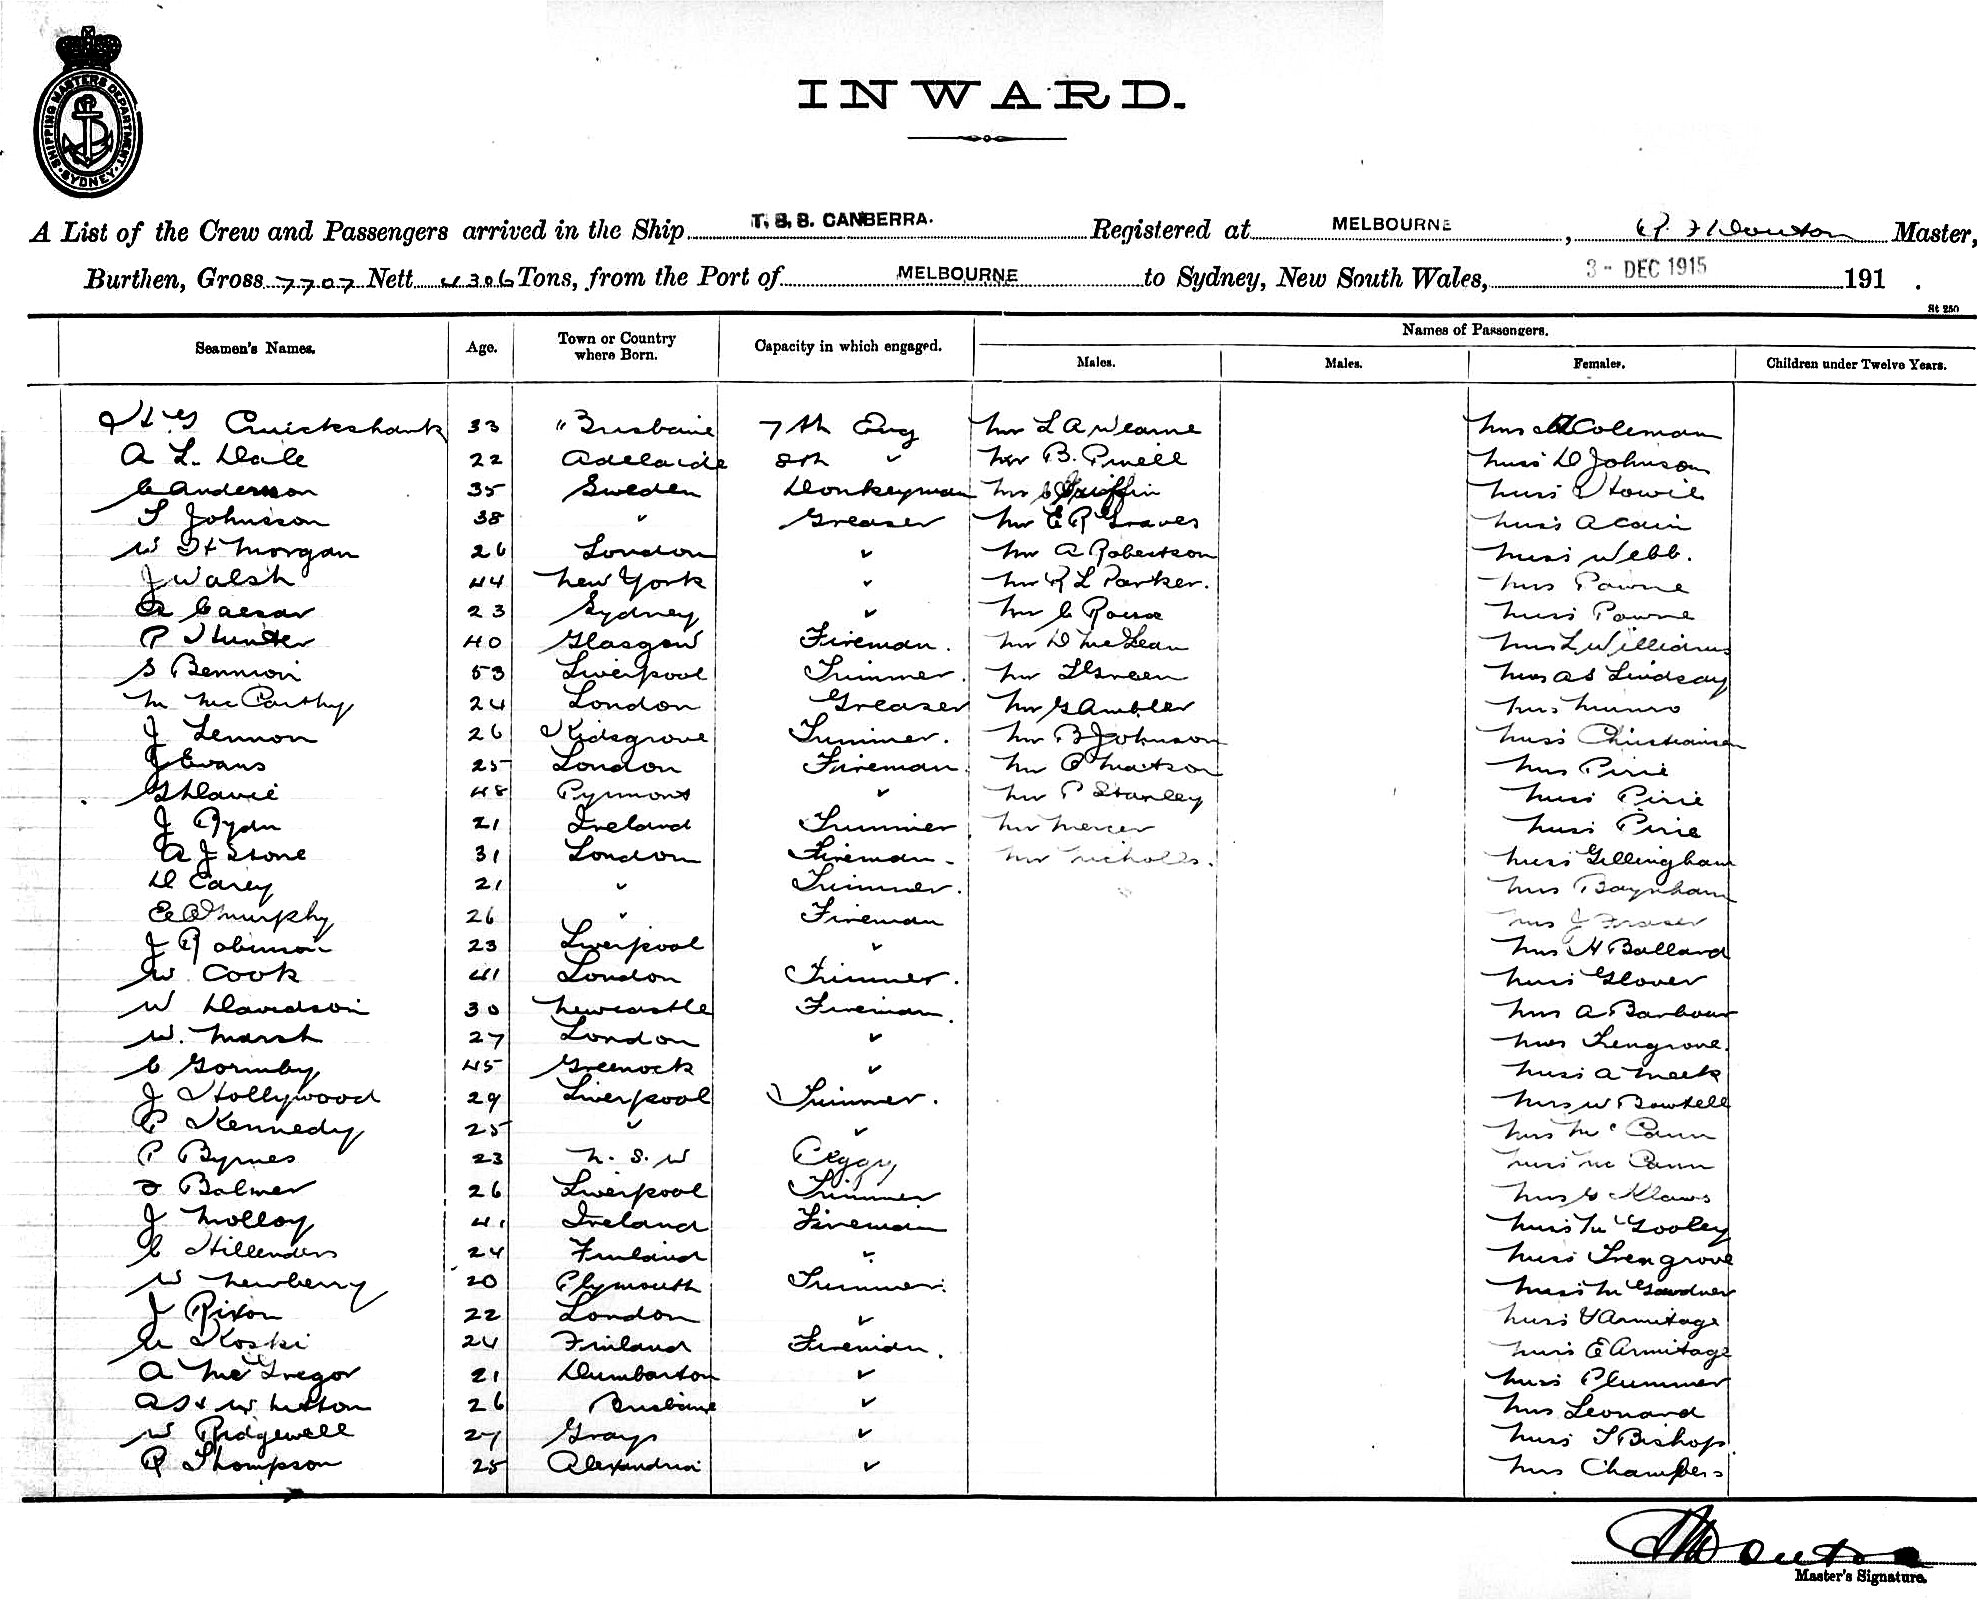 SHIPPING MASTERS DEPARTMENT SYDNEY
INWARD.
A List of the Crew and Passengers arrived in the Ship T.S.S. CANBERRA. Registered at MELBOURNE, Master,
Burthen, Gross 7707 Nett 4306 Tons, from the Port of MELBOURNE to Sydney, New South Wales, 3 - DEC 1915 191 .
St 250
Names of Passengers.
Seamen's Names. Age. Town or Country where Born. Capacity in which engaged. Males. Males. Females. Children under Twelve Years.
Cruickshank 33 " Brisbane 7th Eng Mr L A Wearne Coleman
A L. Dale 22 Adelaide 8th " Mr B. Powell Miss D Johnson
C Anderson 35 Sweden Donkeyman Mr Griffin Miss Howie
T Johnsson 38 " Greaser Mr E R Graves Miss A Cain
W H Morgan 26 London " Mr A Robertson Miss Webb.
J Walsh 44 New York " Mr R L Parker.
A Caesar 23 Sydney " Mr C Miss
P Hunter 40 Glasgow Fireman. Mr D McLean Mrs L Williams
S Bennion 53 Liverpool Trimmer. Mr Green Mrs A S Lindsay
M McCarthy 24 London Greaser Mr G Ambler Mrs Munro
J Lennon 26 Kidsgrove Trimmer. Mr B Johnson Miss Christiansen
J Evans 25 London Fireman. Mr Matson Mrs Pirie
48 Pyrmont " Mr P Stanley Miss Pirie
J Rydn 21 Ireland Trimmer Mr Mercer Miss Pirie
A J Stone 31 London Fireman. Mr Nicholls. Miss Gillingham
D Carey 21 " Trimmer. Mrs Baynham
Murphy 26 " Fireman Mrs J Fraser
J Robinson 23 Liverpool " Mrs H Ballard
W. Cook 41 London Trimmer. Miss Glover
W Davidson 30 Newcastle Fireman. Mrs A Barbour
W. Marsh 27 London " Mrs Trengrove.
C Gormby 45 Greenock " Miss A Meek
J Hollywood 29 Liverpool Trimmer. Mrs W Bowtell
P Kennedy 25 " " Mrs McCann
P Byrnes 23 N. S. W Peggy Miss McCann
Balmer 26 Liverpool Trimmer Mrs G Klaws
J Molloy 41 Ireland Fireman Miss M Gooley
C Hillenders 24 Finland " Miss Trengrove
W Newberry 20 Plymouth Trimmer. Miss M Gardner
J Rixon 22 London " Miss V Armitage
Koski 24 Finland Fireman. Miss E Armitage
A McGregor 21 Dumbarton " Miss Plummer
26 Brisbane " Mrs Leonard
W Ridgewell 27 Grays " Miss T Bishop.
R Thompson 25 Alexandria " Mrs Chambers
Master's Signature.